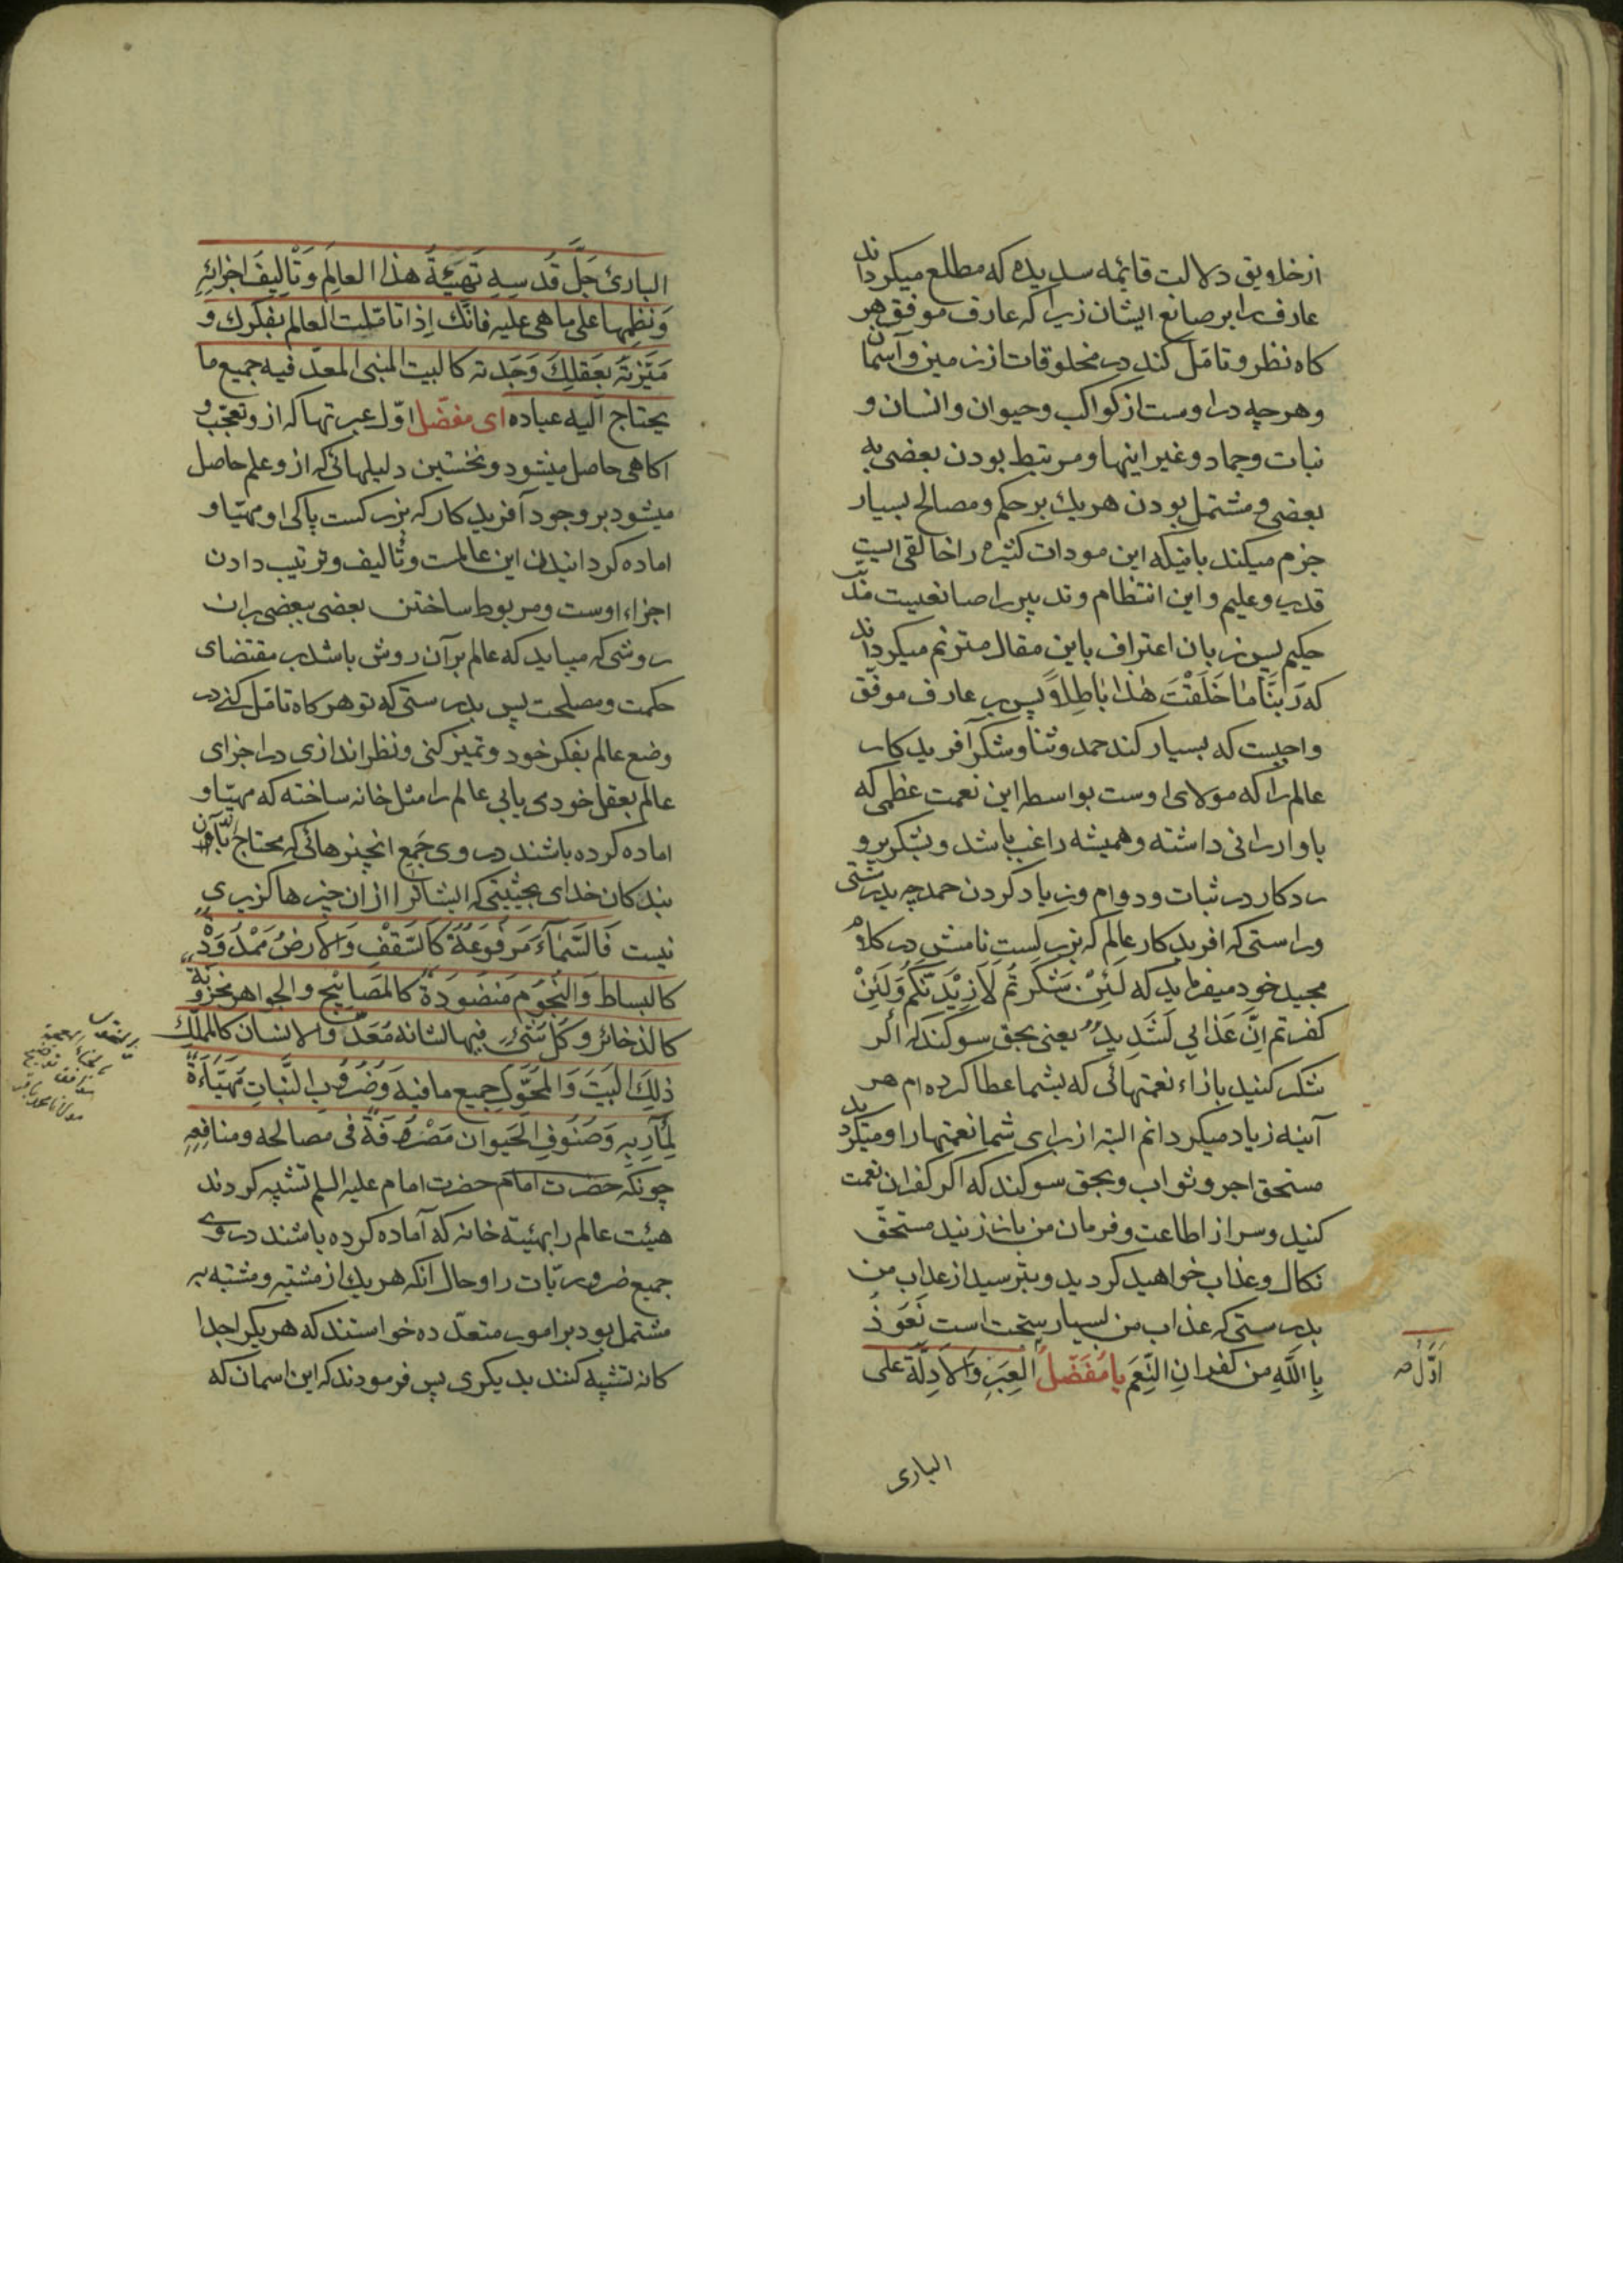 از خلاویق دلالت قائمه سدیده که مطلع میکرداند
عارف را بر صانع ایشان زیرا که عارف موفق هر
کاه نظر و تامّل کند در مخلوقات از زمین و آسمان
و هرچه در اوست از کواکب و حیوان و انسان و
نبات و جماد و غیر اینها و مرتبط بودن بعضی به
بعضی و مشتمل بودن هر یك بر حکم و مصالح بسیار
جزم میکند بانیکه این مودات کثیره را خالقی است
قدیر و علیم و این انتظام و تدبیر را صانعیست
حکیم پس زبان اعتراف باین مقال مترنم میکرداند
که رَبَّنَا مَا خَلَقْتَ هٰذَا بَاطِلاً پس بر عارف موفّق
واجبست که بسیار کند حمد و ثنا و شکر آفریدکار
عالم را که مولای اوست بواسطه این نعمت عظمی که
باو ارزانی داشته و همیشه راغب باشد و بتکریر و
در کار در ثبات و دوام و زیاد کردن حمد چه بدرستی
و راستی که افریدکار عالم که بزرکست نامش در کلام
مجید خود میفرماید که لَئِنْ شَکَرْتُمْ لَاَزِیْدَنَّکُمْ وَلَئِنْ
کفرتم اِنَّ عَذَابِی لَشَدِیدٌ یعنی بحق سوکند که اکر
شکر کنید بازاء نعمتهائی که بشما عطا کرده ام هر
آینه زیاد میکردانم البته از برای شما نعمتها را و میکردید
مستحق اجر و ثواب و بحق سوکند که اکر کفران نعمت
کنید و سر از اطاعت و فرمان من باز زنید مستحقّ
نکال و عذاب خواهید کردید و بترسید از عذاب من
بدرستی که عذاب من بسیار سخت است نَعوُذُ
بِاللَّهِ من کفرانِ النِّعَمِ یا مُفَضّلُ العِبَرِ وَالاَدِلَّةِ علی
اَوَّلُ صه
الباری
الباریٔ جَلَّ قُدسِهِ تَهیِئَةُ هذا العالَم وَتَألیفَ اجزائِهِ
وَنَظِمها علی ما هی علیه فانّك اِذا تامّلت العالم بفکرك و
مَیَّزتَهُ بعَقلِكَ وَجَدته کالبیت المبنی المعدّ فیه جمیع ما
یحتاج الیه عباده ای مفضّل اوّل عبرتها که از و تعجّب و
اکاهی حاصل میشود و نخستین دلیلهائی که از و علم حاصل
میشود بر وجود آفریدکار که بزرکست پاکی او مهیّا و
اماده کردانیدن این عالمست و تألیف و ترتیب دادن
اجزاء اوست و مربوط ساختن بعضی ببعضی بر ان
روشی که میباید که عالم بر آن روش باشد بمقتضای
حکمت و مصلحت پس بدرستی که تو هرکاه تامّل کنی در
وضع عالم بفکر خود و تمیز کنی و نظر اندازی در اجزای
عالم بعقل خود می یابی عالم را مثل خانه ساخته که مهیّا و
اماده کرده باشند در وی جَمِع انچیزهائی که محتاج بآن
بندکان خدای بحیثیتی که ایشانرا از ان چیزها کزیری
نیست فَالسَّماءَ مَرفوُعَةٌ کَالسَّقْفِ وَالاَرضُ مَمْدُودَةٌ
کالبساط وَالنُّجوُم مَنضوُدَةٌ کالمَصابیح والجواهر مخزُونَةٌ
کالذخائر و کلّ شیٔ فیها لشانه مُعَدٌّ والانسان کالمملّك
ذلِكَ البَیتَ وَالمخَوَّلِ جمیع ما فیه وَضُروُبِ النَّباتِ مُهَیَّاءَةٌ
لِمَأربِهِ وَصُنوُفِ الحَیوان مَصْرُوفَةٌ فی مصالحه و منافِعِهِ
چونکه حضرت امام حضرت امام علیه السلم تشبیه کردند
هیئت عالم را بهیئة خانه که آماده کرده باشند در وی
جمیع ضروریّات را و حال انکه هر یك از مشبّه و مشبّه به
مشتمل بود بر امور متعدّده خواستند که هر یکرا جدا
کانه تشبیه کنند بدیکری پس فرمودند که این اسمان که